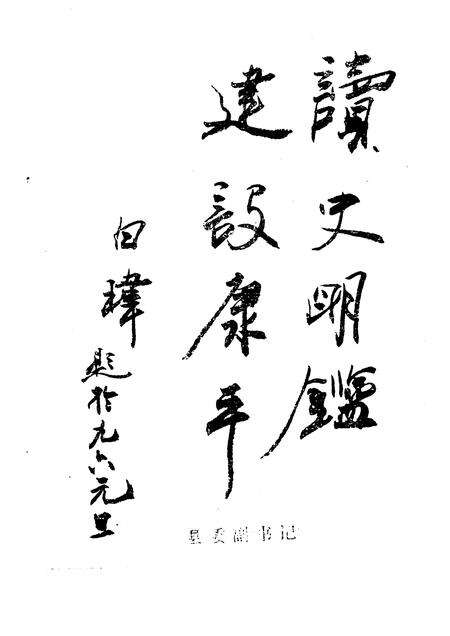 讀史明鑑
建設康平
白瑋
題於九六元旦
县委副书记